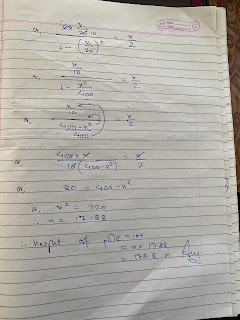 or, 2x/20 10 / 1 - (x/20)² = x/2
or, x/10 / 1 - x²/400 = x/2
or, x/10 / 400-x²/400 = x/2
or, 400 x x / 10 (400-x²) = x/2
or, 80 = 400-x²
or, x² = 320
∴ x = 17.88
∴ height of pole = 10x
= 10 × 17.88
= 178.8 m Ans